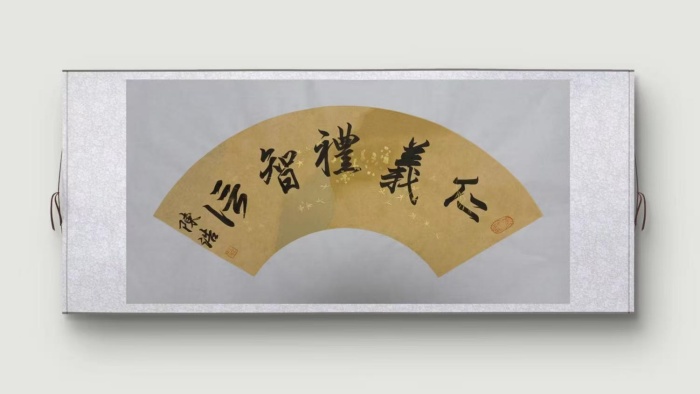 仁義禮智信
陳浩